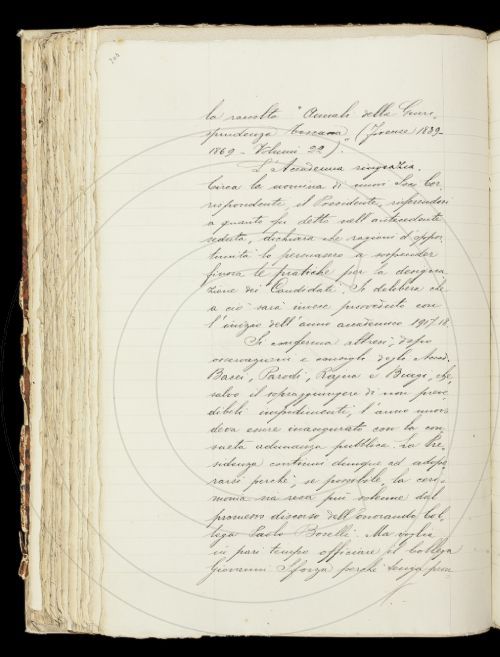 la raccolta "Annali della Giuri-
sprudenza Toscana" (Firenze 1839-
1869 - Volumi 22).
L'Accademia ringrazia.
Circa la nomina di nuovi Soci Cor-
rispondente il Presidente, riferendosi
a quanto fu detto nell'antecedente
seduta, dichiara che ragioni d'oppor-
tunità lo persuasero a sospendere
finora le pratiche per la designa-
zione dei Candidati. Si delibera che
a ciò sarà invece provveduto con
l'inizio dell'anno accademico 1917-18.
Si conferma altresì, dopo
osservazioni e consigli degli Accad.
Bacci, Parodi, Rajna e Biagi, che,
salvo il sopraggiungere di non preve-
dibili impedimenti, l'anno nuovo
deva essere inaugurato con la con-
sueta adunanza pubblica. La Pre-
sidenza continui dunque ad adope-
rarsi perchè, se possibile, la ceri-
monia sia resa più solenne dal
promesso discorso dell'onorando Col-
lega Paolo Boselli. Ma voglia
in pari tempo officiare il collega
Giovanni Sforza perchè tenga pron